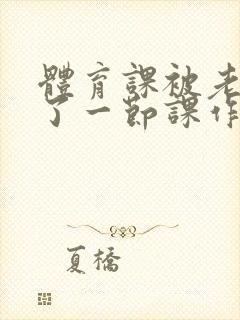 體育課被老
了一節課作
夏橋